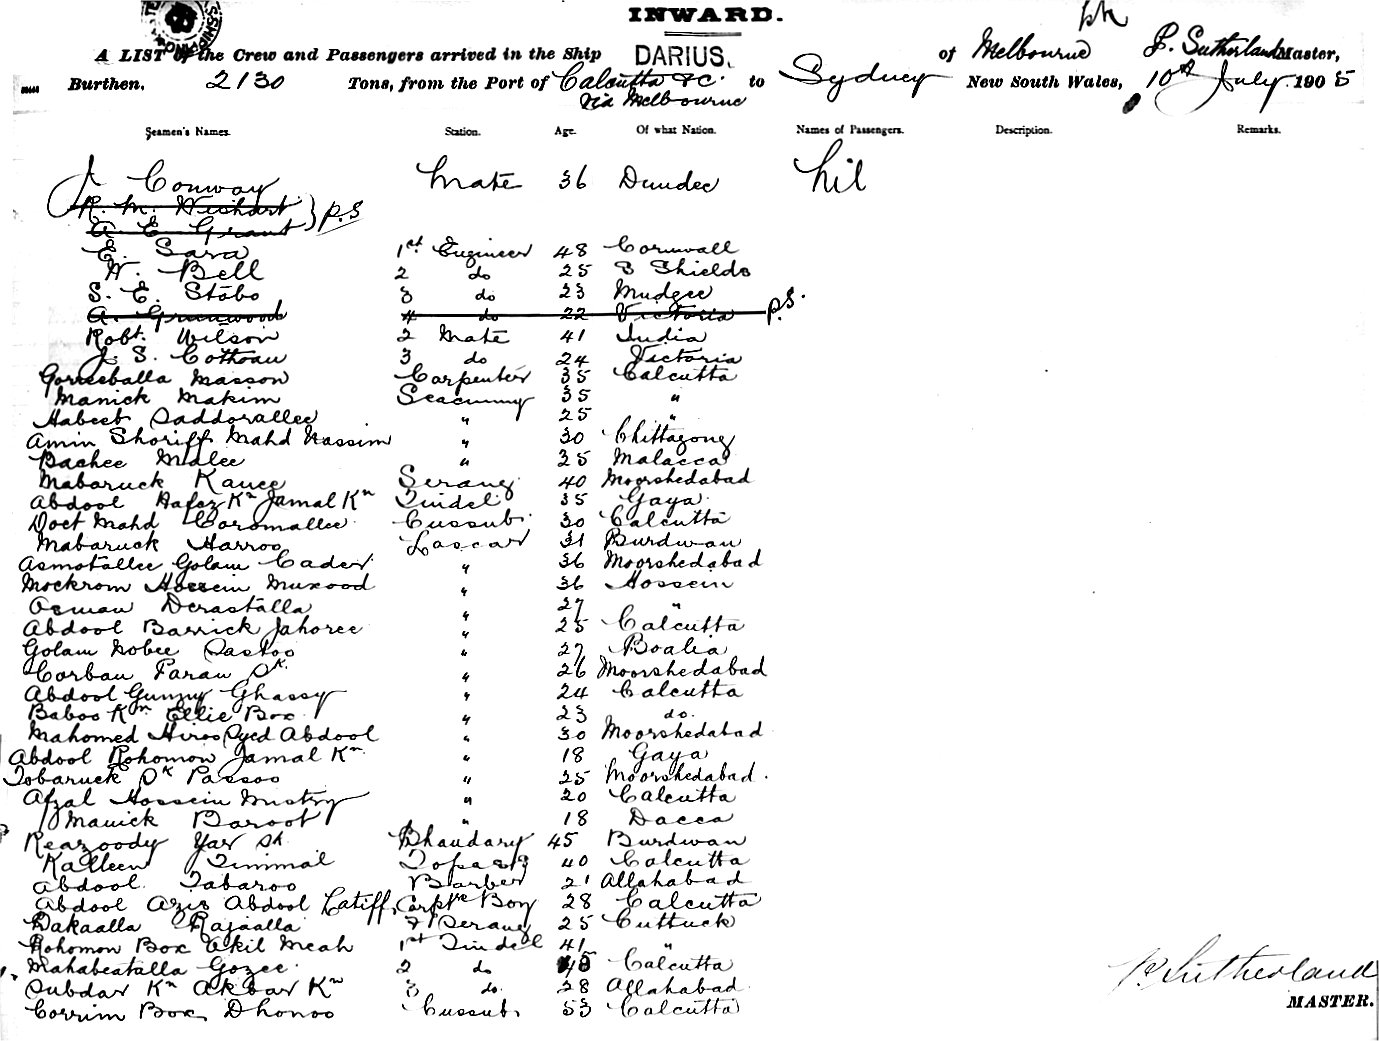 INWARD.
A LIST of the Crew and Passengers arrived in the Ship DARIUS. of Melbourne P. Sutherland Master,
Burthen. 2130 Tons, from the Port of Calcutta &c. to Sydney New South Wales, 10th July 1905
via Melbourne
Seamen's Names. Station. Age. Of what Nation. Names of Passengers. Description. Remarks.
J Conway Mate 36 Dundee Nil
R. M. Wishart } P.S
A E Grant
E. Sara 1st Engineer 48 Cornwall
W. Bell 2 do 25 S Shields
S. E. Stobo 3 do 23 Mudgee
A. Greenwood 4 do 22 Victoria P.S.
Robt. Wilson 2 Mate 41 India
J. S. Cotheau 3 do 24 Victoria
Masson Carpenter 35 Calcutta
Manick Makim Seacunny 35 "
Habeeb Saddorallee " 25 "
Amin Shoriff Mahd Nassim " 30 Chittagong
Bachee Malee " 35 Malacca
Mabaruck Kanee Serang 40 Moorshedabad
Abdool Hafez Kn Jamal Kn Tindel 35 Gaya
Doct Mahd Coromallee Cussub 30 Calcutta
Mabaruck Harroo Lascar 31 Burdwan
Asmotallee Golam Cader " 36 Moorshedabad
Mockrom Hossein Muxood " 36 Hossein
Osman Derastalla " 27 "
Abdool Barrick Jahoree " 25 Calcutta
Golam Nobee " 27 Boalia
Corban Faran Sk. " 26 Moorshedabad
Abdool Gunny Ghassy " 24 Calcutta
Baboo Kn Ellie Box " 23 do.
Mahomed Hiroo Syed Abdool " 30 Moorshedabad
Abdool Rohomon Jamal Kn " 18 Gaya
Tobaruck Sk Passoo " 25 Moorshedabad.
Afzal Hossein Mistry " 20 Calcutta
Manick Baroot " 18 Dacca
Reazoody Yar Sk Bhandary 45 Burdwan
Kalleen Timmal Topass 40 Calcutta
Abdool Tabaroo Barber 21 Allahabad
Abdool Azis Abdool Latiff Carptr Boy 28 Calcutta
Dakaalla Rajaalla Serang 25 Cuttuck
Rohomon Box Akil Meah 1st Tindell 41 "
Mahabeatalla Gozee 2 do 45 Calcutta
Subdar Kn Akbar Kn 3 do. 28 Allahabad
Corrim Box Dhonoo Cussub 53 Calcutta
P. Sutherland
MASTER.